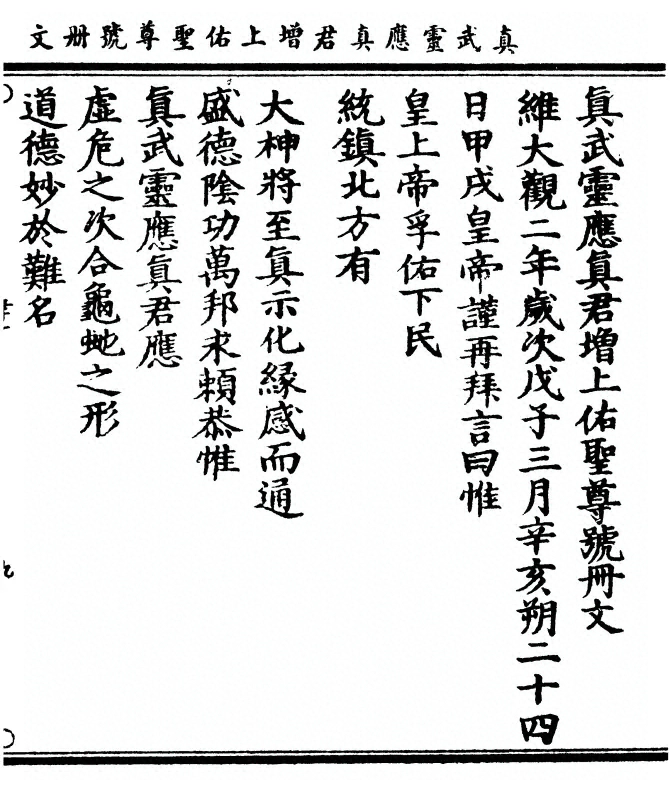 真武靈應真君增上佑聖尊號册文
眞武靈應眞君增上佑聖尊號冊文
維大觀二年歲次戊子三月辛亥朔二十四
日甲戌皇帝謹再拜言曰惟
皇上帝孚佑下民
統鎮北方有
大神將至眞示化緣感而通
盛德陰功萬邦永賴恭惟
眞武靈應眞君應
虛危之次合龜虵之形
道德妙於難名